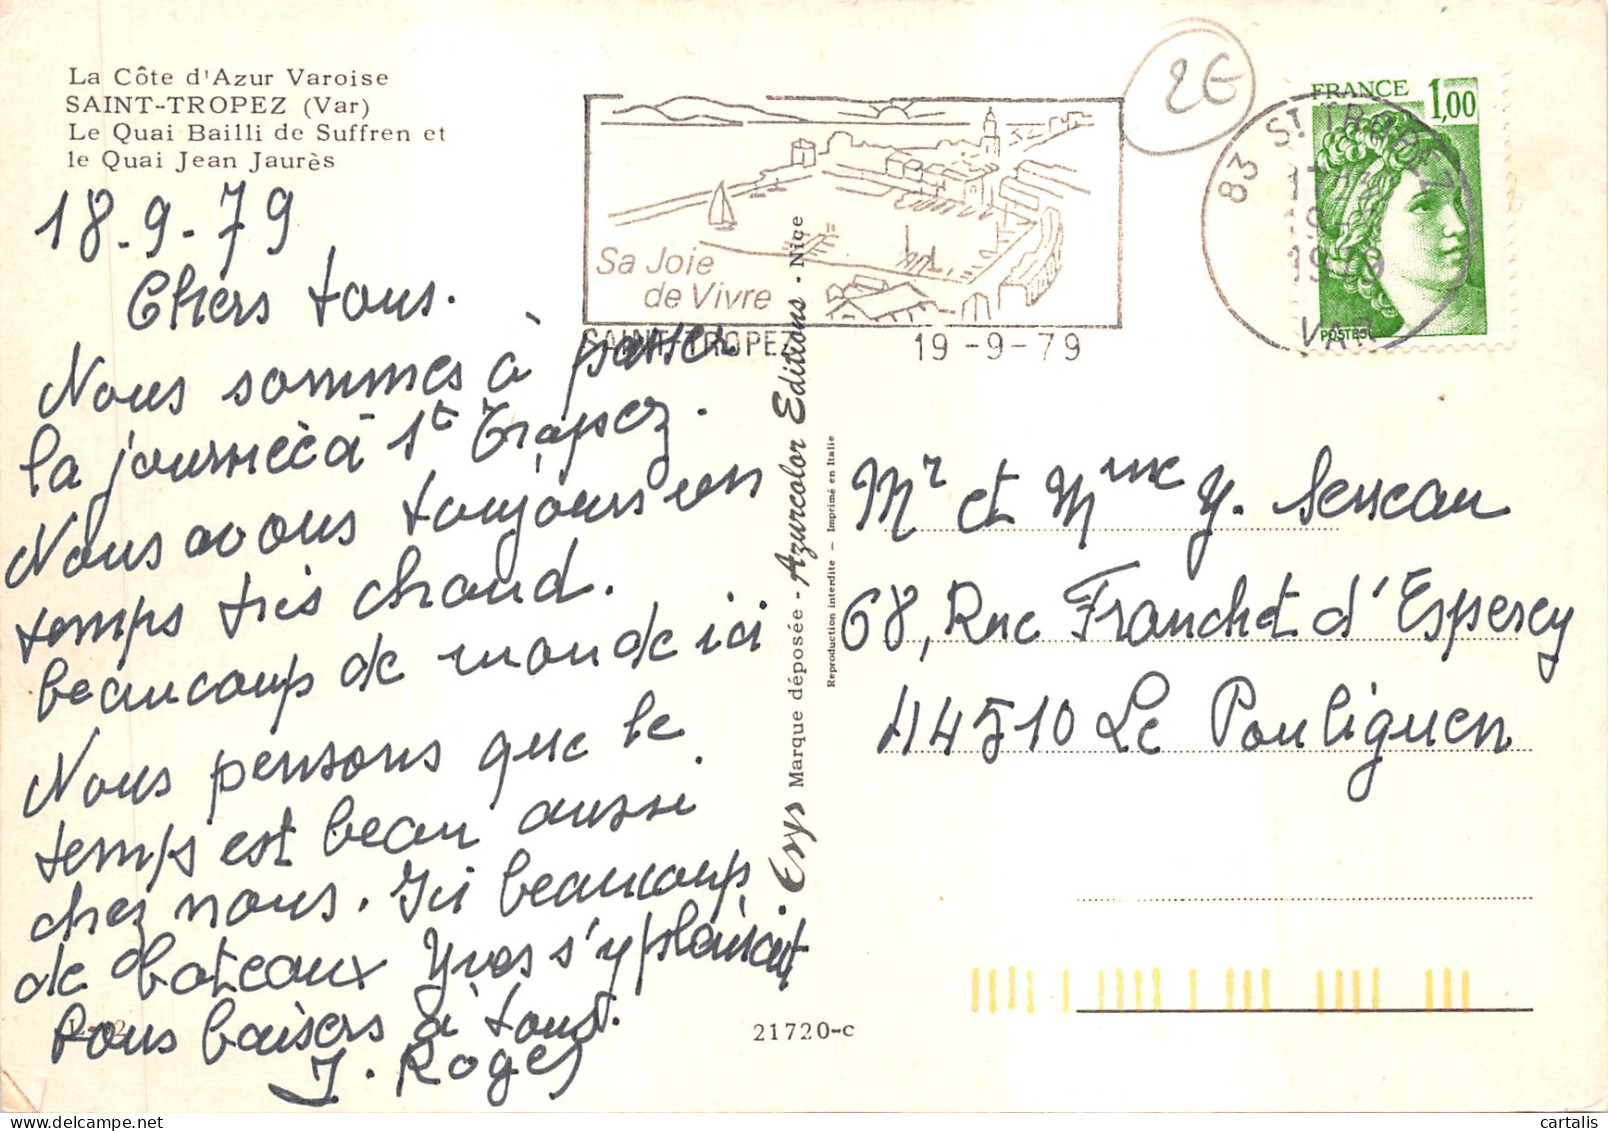 La Côte d'Azur Varoise
SAINT-TROPEZ (Var)
Le Quai Bailli de Suffren et
le Quai Jean Jaurès
18-9-79
Chers tous.
Nous sommes à passer
la journeè à St Tropez.
Nous avons toujours un
temps très chaud.
beaucoup de monde ici
Nous pensons que le
temps est beau aussi.
chez nous. Ici beaucoup
de bateaux Yves s'y plairait
Bons baisers à tous.
J. Roger
Sa Joie
de Vivre
SAINT-TROPEZ 19-9-79
2€
83 ST TROPEZ
19
VAR
FRANCE 1,00
POSTES
Erys Marque déposée - Azurcolor Editions - Nice
Reproduction interdite - Imprimé en Italie
Mr et Mme Y.
68, Rue Franchet d'Esperey
44510 Le Pouliguen
21720-c
cartalis